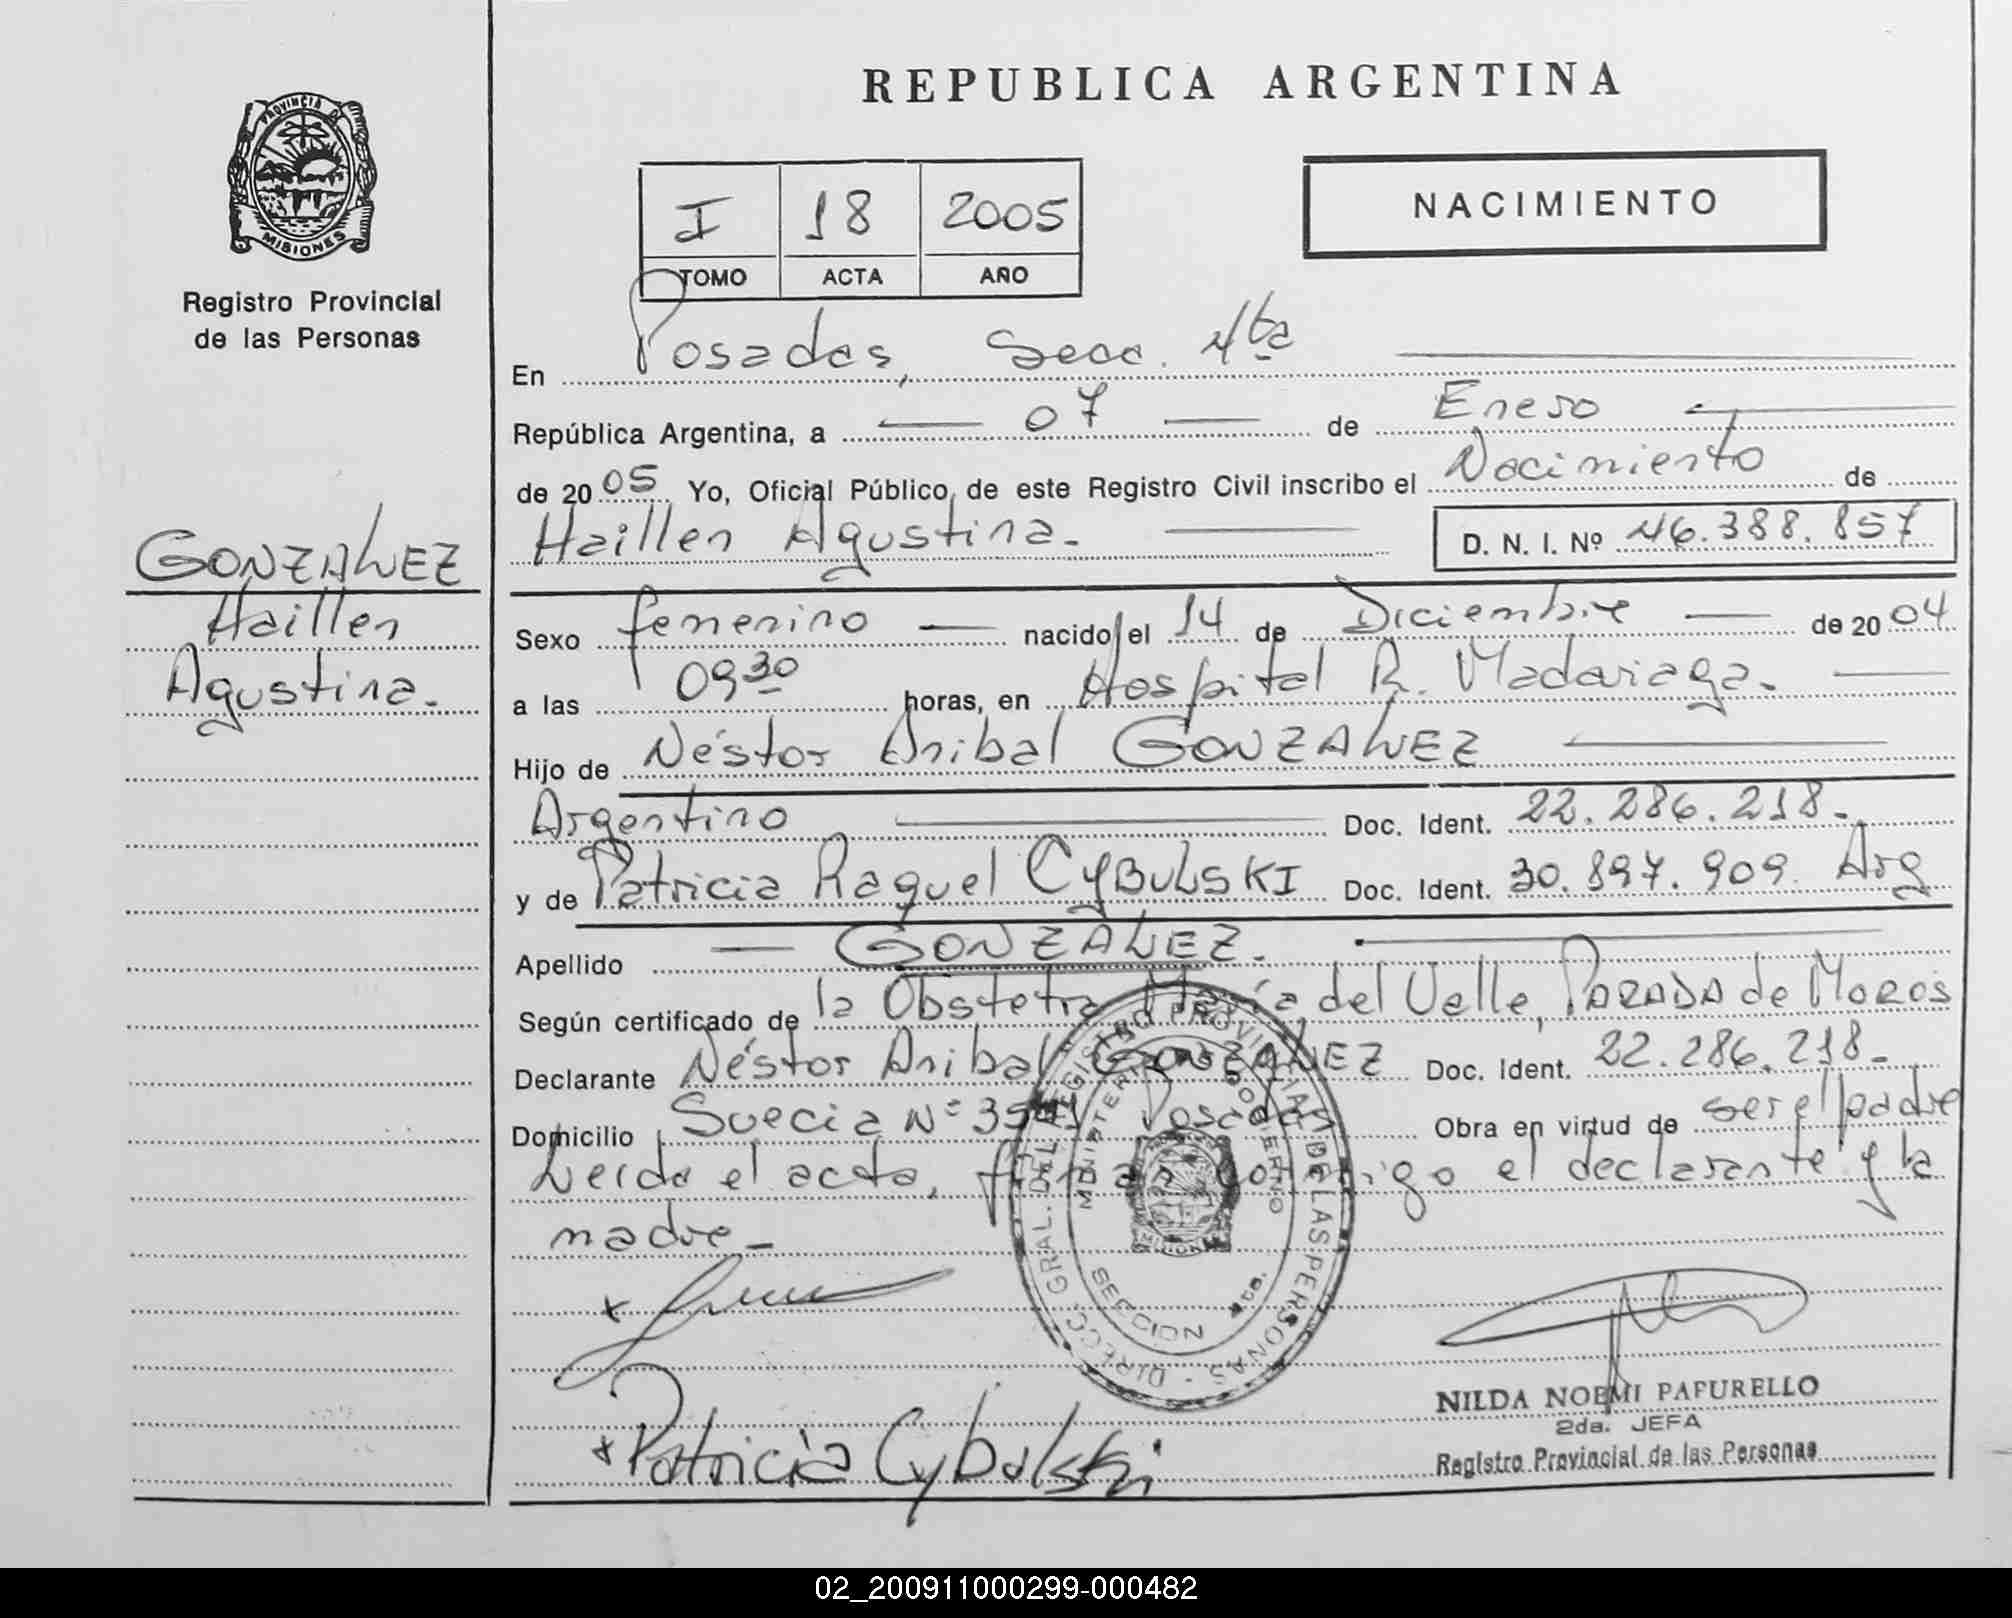 REPUBLICA ARGENTINA
PROVINCIA DE
MISIONES
Registro Provincial
de las Personas
I 18 2005
TOMO ACTA AÑO
NACIMIENTO
GONZALEZ
Haillen
Agustina.
En Posadas, Secc. 4ta
República Argentina, a 07 de Enero
de 2005 Yo, Oficial Público, de este Registro Civil inscribo el Nacimiento de
Haillen Agustina. D. N. I. Nº 46.388.857
Sexo femenino nacido el 14 de Diciembre de 2004
a las 09 30 horas, en Hospital R. Madariaga.
Hijo de Néstor Anibal GONZALEZ
Argentino Doc. Ident. 22.286.218.
y de Patricia Raquel CYBULSKI Doc. Ident. 30.897.909. Arg
Apellido GONZALEZ.
Según certificado de la Obstetra María del Valle, PARADA de MOROS
Declarante Néstor Anibal GONZALEZ Doc. Ident. 22.286.218.
Domicilio Suecia Nº Posadas Obra en virtud de ser el padre
Leida el acta, firman conmigo el declarante y la
madre
DIRECC. GRAL. DEL REGISTRO PROVINCIAL DE LAS PERSONAS
MINISTERIO DE GOBIERNO
MISIONES
SECCION 4ta.
x Patricia Cybulski
NILDA NOEMI PAFURELLO
2da. JEFA
Registro Provincial de las Personas
02_200911000299-000482